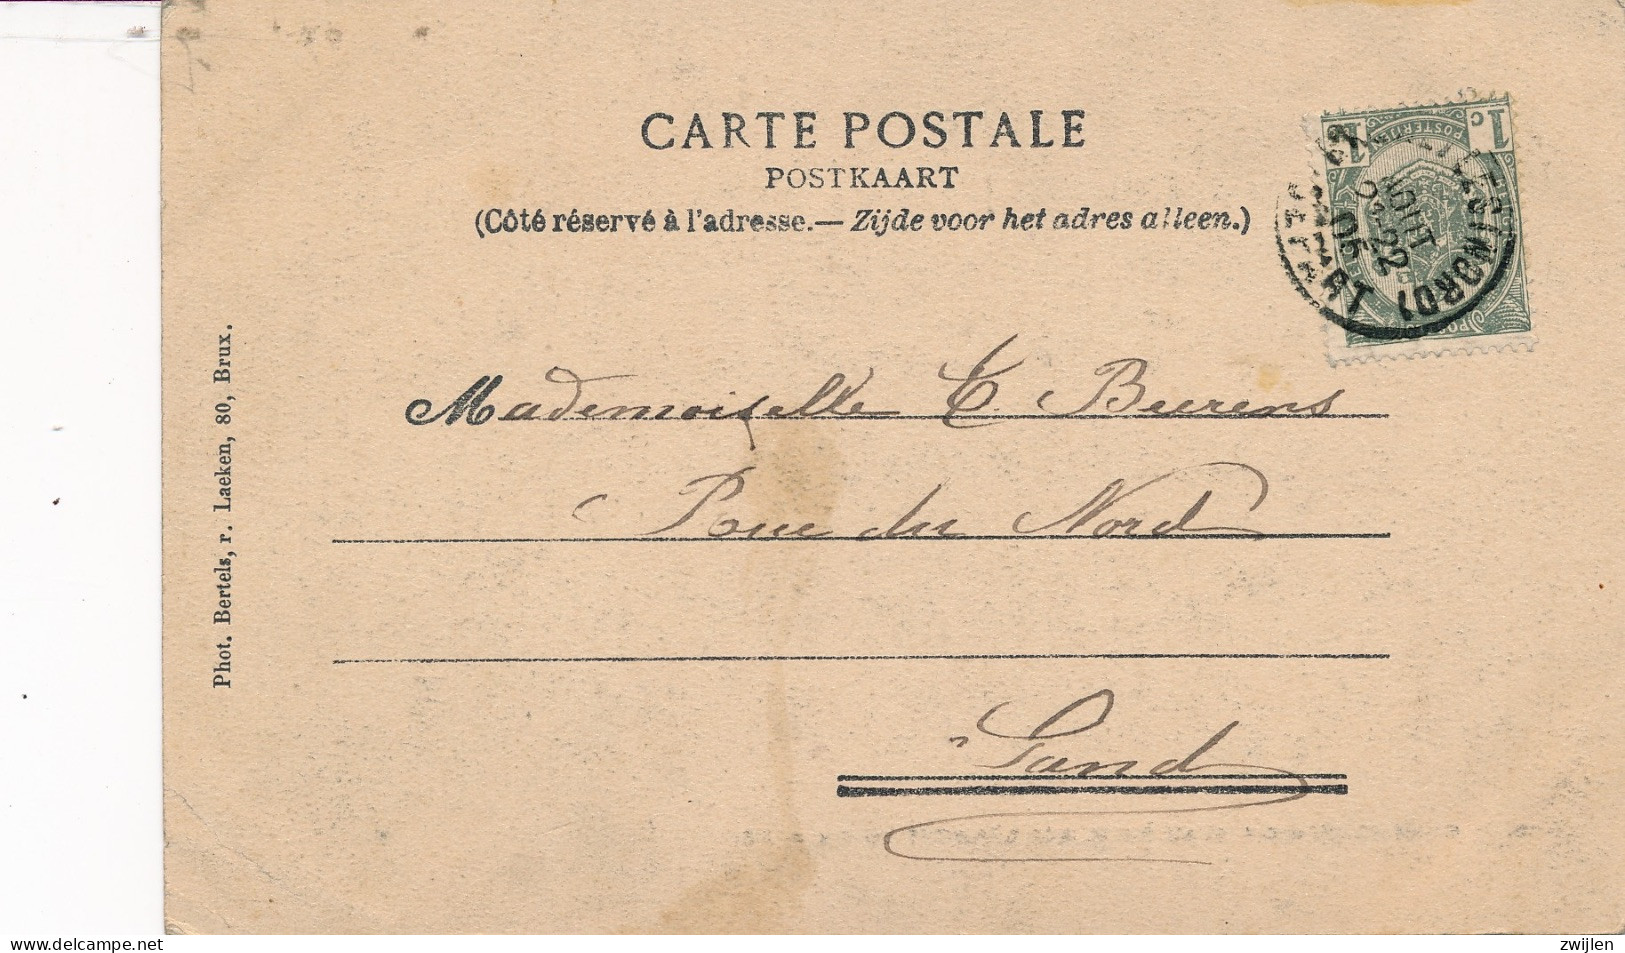 CARTE POSTALE
POSTKAART
(Côté réservé à l'adresse.— Zijde voor het adres alleen.)
1c 1c
POSTERIJEN
(NORD)
DÉPART
AOUT
22
05
Mademoiselle E. Beerens
Rue du Nord
Gand
Phot. Bertels, r. Laeken, 80, Brux.
www.delcampe.net
zwijlen